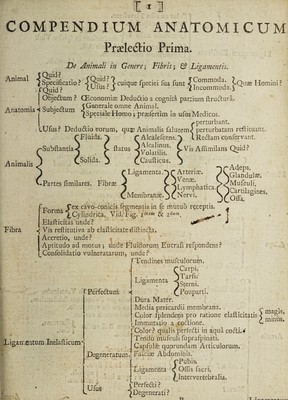 [ 1 ]
COMPENDIUM ANATOMICUM
Prælectio Prima.
De Animali in Genere; Fibris; & Ligamentis.
Animal
Quid?
Specificatio?
Quid?
Usus?
cuique speciei sua sunt
Commoda.
Incommoda.
Quæ Homini?
Anatomia
Quid?
Objectum? Œconomiæ Deductio a cognita partium structura.
Subjectum
Generale omne Animal.
Speciale Homo; præsertim in usus Medicos.
Usus? Deductio eorum, quæ Animalis salutem
perturbant.
perturbatam restituant.
Rectam conservant.
Animalis
Substantia
Fluida.
Solida.
status
Alcalescens.
Alcalinus.
Volatilis.
Causticus.
Vis Assimilans Quid?
Partes similares. Fibræ
Ligamenta.
Membranæ
Arteriæ.
Venæ.
Lymphatica
Nervi.
Adeps.
Glandulæ.
Musculi,
Cartilagines.
Ossa.
Fibra
Forma
ex cavo-conicis segmentis in se mutuo receptis.
Cylindrica. Vid. Fig.
Elasticitas unde?
Vis restitutiva ab elasticitate distincta.
Accretio, unde?
Aptitudo ad motus; unde Fluidorum Eucrasi respondens?
Consolidatio vulneratarum, unde?
Ligamentum Inelasticum
Perfectum
Tendines musculorum.
Ligamenta
Carpi,
Tarsi,
Sterni.
Pouparti.
Dura Mater.
Media pericardii membrana.
Color splendens pro ratione elasticitatis
magis,
minus.
Immutatio a coctione.
Color? qualis perfecti in aqua cocti.
Degeneratum
Tendo musculi supraspinati.
Capsulæ quorundam Articulorum.
Fasciæ Abdominis.
Ligamenta
Pubis.
Ossis sacri.
Intervertebralia.
Usus
Perfecti?
Degenerati?